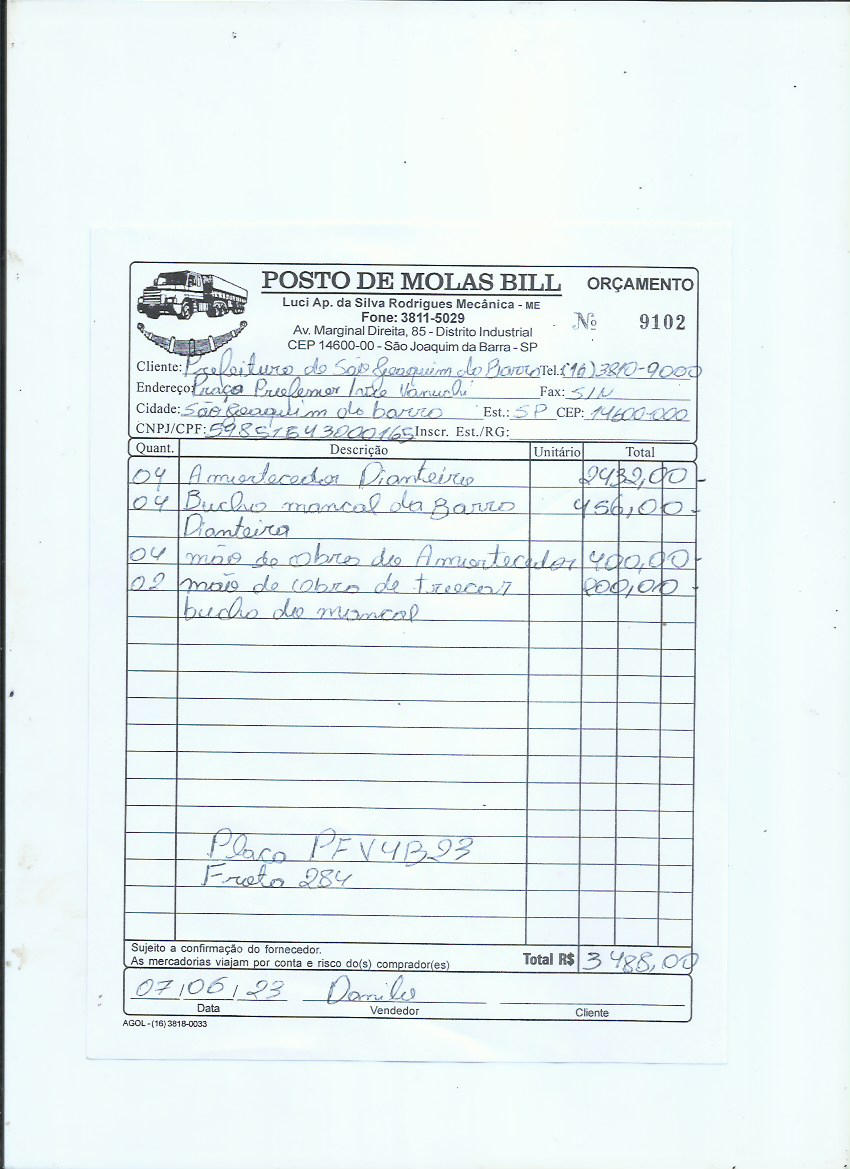 POSTO DE MOLAS BILL
ORÇAMENTO
Luci Ap. da Silva Rodrigues Mecânica - ME
Fone: 3811-5029
Nº 9102
Av. Marginal Direita, 85 - Distrito Industrial
CEP 14600-00 - São Joaquim da Barra - SP
Cliente: Prefeitura de São Joaquim da Barra Tel.: (16) 3810-9000
Endereço: Praça Professor Fax: S/N
Cidade: São Joaquim da barra Est.: SP CEP: 14600-000
CNPJ/CPF: Inscr. Est./RG:
Quant. Descrição Unitário Total
04 Amortecedor Dianteiro 2432,00 -
04 Bucha mancal da Barra 456,00 -
Dianteira
04 mão de obra do Amortecedor 400,00 -
02 mão de obra de trocar 200,00 -
bucha do mancal
Placa PFV4B23
Frota 284
Sujeito a confirmação do fornecedor.
As mercadorias viajam por conta e risco do(s) comprador(es)
Total R$ 3488,00
07/06/23 Danilo
Data Vendedor Cliente
AGOL - (16) 3818-0033